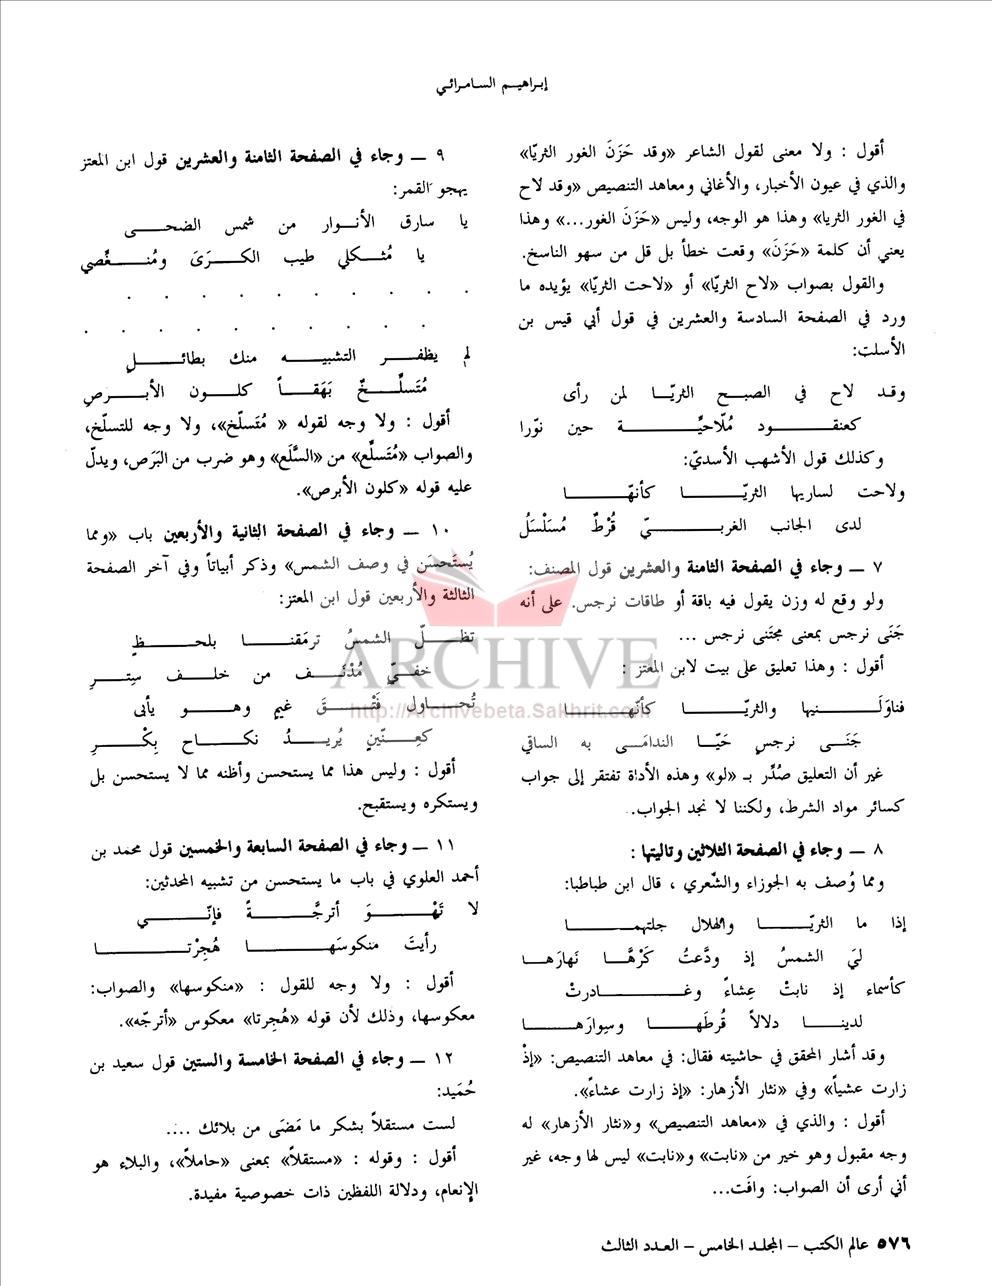 إبراهيم السامرائي
أقول : ولا معنى لقول الشاعر «وقد حَزَنَ الغور الثريّا»
والذي في عيون الأخبار، والأغاني ومعاهد التنصيص «وقد لاح
في الغور الثريا» وهذا هو الوجه، وليس «حَزَنَ الغور...» وهذا
يعني أن كلمة «حَزَنَ» وقعت خطأ بل قل من سهو الناسخ.
والقول بصواب «لاح الثريّا» أو «لاحت الثريّا» يؤيده ما
ورد في الصفحة السادسة والعشرين في قول أبي قيس بن
الأسلت:
وقد لاح في الصبح الثريّا لمن رأى
كعنقود مُلّاحيَّة حين نوّرا
وكذلك قول الأشهب الأسديّ:
ولاحت لساريها الثريّا كأنهّا
لدى الجانب الغربيّ قُرْطٌ مُسَلْسَلُ
٧ ــ وجاء في الصفحة الثامنة والعشرين قول المصنف:
ولو وقع له وزن يقول فيه باقة أو طاقات نرجس. على أنه
جَنَى نرجس بمعنى مجتَنى نرجس ...
أقول : وهذا تعليق على بيت لابن المعتز :
فناوَلَنيها والثريّا كأنهّا
جَنَى نرجسٍ حَيّا الندامَى به الساقي
غير أن التعليق صُدِّر بـ «لو» وهذه الأداة تفتقر إلى جواب
كسائر مواد الشرط، ولكننا لا نجد الجواب.
٨ ــ وجاء في الصفحة الثلاثين وتاليتها :
ومما وُصف به الجوزاء والشّعري ، قال ابن طباطبا:
إذا ما الثريّا والهلال جلتهما
ليَ الشمسُ إذ ودَّعتُ كَرْهًا نَهارَها
كأسماء إذ نابتْ عِشاءً وغادرتْ
لدينا دلالاً قُرطَها وسِوارَها
وقد أشار المحقق في حاشيته فقال: في معاهد التنصيص: «إذْ
زارت عشياً» وفي «نثار الأزهار: «إذ زارت عشاءً».
أقول : والذي في «معاهد التنصيص» و«نثار الأزهار» له
وجه مقبول وهو خير من «نابت» و«نابت» ليس لها وجه، غير
أني أرى أن الصواب: وافَت...
٩ ــ وجاء في الصفحة الثامنة والعشرين قول ابن المعتز
يهجو القمر:
يا سارق الأنوار من شمس الضحى
يا مُثكلي طيب الكرَىَ ومُنغِّصي
. . . . . . . . . .
. . . . . . . . . .
لم يظفر التشبيه منك بطائلٍ
مُتَسلِّخٌ بَهَقاً كلون الأبرصِ
أقول : ولا وجه لقوله « مُتَسلّخ»، ولا وجه للتسلّخ،
والصواب «مُتَسلِّع» من «السَّلَع» وهو ضرب من البَرَص، ويدلّ
عليه قوله «كلون الأبرص».
١٠ ــ وجاء في الصفحة الثانية والأربعين باب «ومما
يُستَحسَن في وصف الشمس» وذكر أبياتاً وفي آخر الصفحة
الثالثة والأربعين قول ابن المعتز:
تظلّ الشمسُ ترمَقنا بلحظٍ
خفيّ مُدْنَف من خلف سِترِ
تُحاول فَتْقَ غيمٍ وهو يأبى
كعِنّينٍ يُريدُ نكاح بِكْرِ
أقول : وليس هذا مما يستحسن وأظنه مما لا يستحسن بل
ويستكره ويستقبح.
١١ ــ وجاء في الصفحة السابعة والخمسين قول محمد بن
أحمد العلوي في باب ما يستحسن من تشبيه المحدثين:
لا تَهْوَ أترجَّةً فإنّي
رأيتَ منكوسَها هُجِرْتا
أقول : ولا وجه للقول : «منكوسها» والصواب:
معكوسها، وذلك لأن قوله «هُجِرتا» معكوس «أترجّه».
١٢ ــ وجاء في الصفحة الخامسة والستين قول سعيد بن
حُمَيد:
لست مستقلاً بشكر ما مَضَى من بلائك ....
أقول : وقوله : «مستقلاً» بمعنى «حاملاً»، والبلاء هو
الإنعام، ودلالة اللفظين ذات خصوصية مفيدة.
ARCHIVE
http://Archivebeta.Sakhrit.com
٥٧٦ عالم الكتب – المجلد الخامس – العدد الثالث